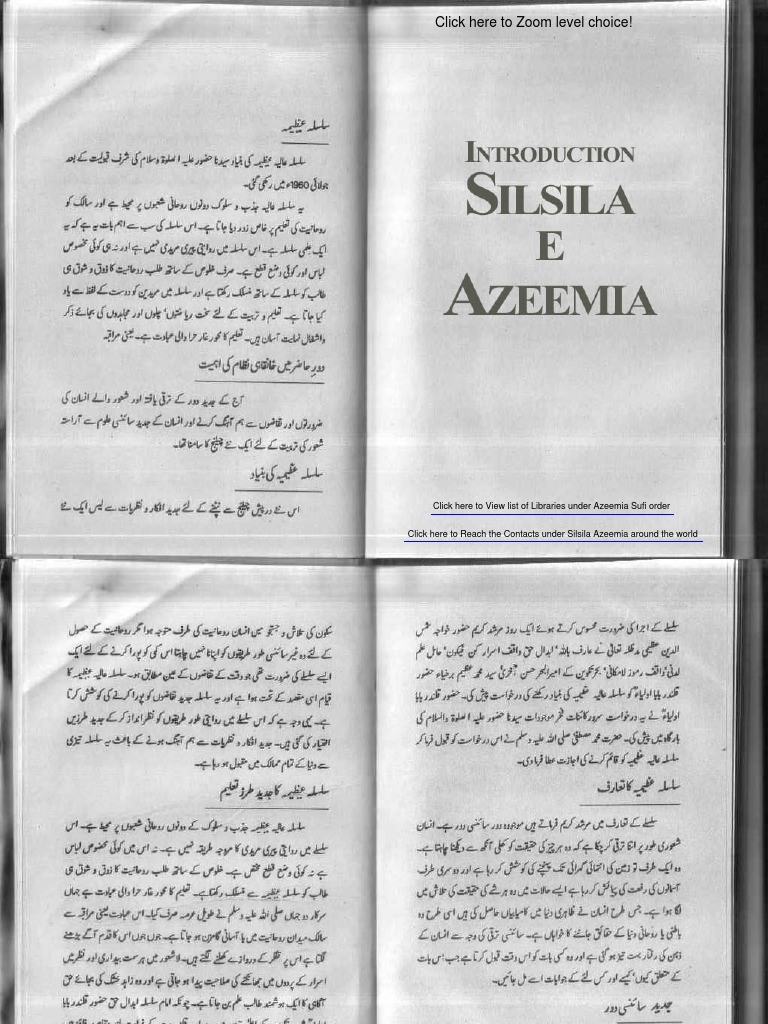 Click here to Zoom level choice!
INTRODUCTION
SILSILA
E
AZEEMIA
Click here to View list of Libraries under Azeemia Sufi order
Click here to Reach the Contacts under Silsila Azeemia around the world
سلسلہ عظیمیہ
سلسلہ عالیہ عظیمیہ کی بنیاد سیدنا حضور علیہ الصلوۃ وسلام کی شرف قبولیت کے بعد
جولائی 1960ء میں رکھی گئی۔
یہ سلسلہ عالیہ جذب و سلوک دونوں روحانی شعبوں پر محیط ہے اور سالک کو
روحانیت کی تعلیم پر خاص زور دیا جاتا ہے۔ اس سلسلہ کی سب سے اہم بات یہ ہے کہ یہ
ایک علمی سلسلہ ہے۔ اس سلسلہ میں روایتی پیری مریدی نہیں ہے اور نہ ہی کوئی مخصوص
لباس اور کوئی وضع قطع ہے۔ صرف خلوص کے ساتھ طلب روحانیت کا ذوق و شوق ہی
طالب کو سلسلہ کے ساتھ منسلک رکھتا ہے اور سلسلہ میں مریدین کو دوست کے لفظ سے یاد
کیا جاتا ہے۔ تعلیم و تربیت کے لئے سخت ریاضتوں' چلوں اور مجاہدوں کی بجائے ذکر
واشغال نہایت آسان ہیں۔ تعلیم کا محور غار حرا والی عبادت ہے۔ یعنی مراقبہ
دور حاضر میں خانقاہی نظام کی اہمیت
آج کے جدید دور کے ترقی یافتہ اور شعور والے انسان کی
ضرورتوں اور تقاضوں سے ہم آہنگ کرنے اور انسان کے جدید سائنسی علوم سے آراستہ
شعور کی تربیت کے لئے ایک نئے چیلنج کا سامنا تھا۔
سلسلہ عظیمیہ کی بنیاد
اس نئے درپیش چیلنج سے نپٹنے کے لئے جدید افکار و نظریات سے لیس ایک نئے
سلسلے کے اجرا کی ضرورت محسوس کرتے ہوئے ایک روز مرشد کریم حضور خواجہ شمس
الدین عظیمی مدظلہ تعالی نے عارف باللہ' ابدال حق واقف اسرار کن فیکون' حامل علم
لدنی' واقف رموز لامکانی' بحر تکوین کے امیر البحر حسن آخری' سید محمد عظیم برخیاء حضور
قلندر بابا اولیاء کو سلسلہ عالیہ عظیمیہ کی بنیاد رکھنے کی درخواست پیش کی۔ حضور قلندر بابا
اولیاء نے یہ درخواست سرور کائنات فخر موجودات سیدنا حضور علیہ الصلوۃ والسلام کی
بارگاہ میں پیش کی۔ حضرت محمد مصطفی صلی اللہ علیہ وسلم نے اس درخواست کو قبول فرما کر
سلسلہ عالیہ عظیمیہ کو قائم کرنے کی اجازت عطا فرما دی۔
سلسلہ عظیمیہ کا تعارف
سلسلے کے تعارف میں مرشد کریم فرماتے ہیں موجودہ دور سائنسی دور ہے۔ انسان
شعوری طور پر اتنا ترقی کر چکا ہے کہ وہ ہر چیز کی حقیقت کو کھلی آنکھ سے دیکھنا چاہتا ہے۔
وہ ایک طرف تو زمین کی انتہائی گہرائی تک پہنچنے کی کوشش کر رہا ہے اور دوسری طرف
آسمانوں کی رفعت کی پیمائش کر رہا ہے ایسے حالات میں وہ ہر شے کی حقیقت کی تلاش میں
لگا ہوا ہے۔ جس طرح انسان نے ظاہری دنیا میں کامیابیاں حاصل کی ہیں اسی طرح وہ
باطنی یا روحانی دنیا کے حقائق جاننے کا خواہاں ہے۔ سائنسی ترقی کی وجہ سے انسان کے
ذہن کی رفتار بہت تیز ہو گئی ہے اور وہ کسی بات کو اس وقت قبول کرتا ہے جب اس بات
کے متعلق کیوں' کیسے اور کس لئے کے جوابات اسے مل جائیں۔
جدید سائنسی دور
سکون کی تلاش و جستجو میں انسان روحانیت کی طرف متوجہ ہوا مگر روحانیت کے حصول
کے لئے وہ غیر سائنسی طور طریقوں کو اپنانا نہیں چاہتا اس کمی کو پورا کرنے کے لئے ایک
ایسے سلسلے کی ضرورت تھی جو وقت کے تقاضوں کے عین مطابق ہو۔ سلسلہ عالیہ عظیمیہ کا
قیام اسی مقصد کے تحت ہوا ہے اور یہ سلسلہ جدید تقاضوں کو پورا کرنے کی کوشش کرتا
ہے۔ یہی وجہ ہے کہ اس سلسلے میں روایتی طور طریقوں کو نظر انداز کر کے جدید طرزیں
اختیار کی گئی ہیں۔ جدید افکار و نظریات سے ہم آہنگ ہونے کے باعث یہ سلسلہ تیزی
سے دنیا کے تمام ممالک میں مقبول ہو رہا ہے۔
سلسلہ عظیمیہ کا جدید طرز تعلیم
سلسلہ عالیہ عظیمیہ جذب و سلوک کے دونوں روحانی شعبوں پر محیط ہے۔ اس
سلسلے میں روایتی پیری مریدی کا مروجہ طریقہ نہیں ہے۔ نہ اس میں کوئی مخصوص لباس
ہے نہ کوئی وضع قطع مختص ہے۔ خلوص کے ساتھ طلب روحانیت کا ذوق و شوق ہی
طالب کو سلسلہ عظیمیہ سے منسلک رکھتا ہے۔ تعلیم کا محور غار حرا والی عبادت ہے جہاں
سرکار دو جہاں صلی اللہ علیہ وسلم نے طویل عرصہ صرف کیا۔ اس عبادت یعنی مراقبہ سے
سالک میدان روحانیت میں با آسانی گامزن ہو جاتا ہے۔ جوں جوں اس کا قدم آگے بڑھنے
لگتا ہے اس پر تفکر کے دروازے کھلنے لگتے ہیں۔ لاشعور میں ہر سمت بیداری اور نظر میں
اسرار کے پردوں میں جھانکنے کی صلاحیت پیدا ہو جاتی ہے اور وہ زاہد خشک کی بجائے حق
آگاہی کا ایک ہوشمند طالب علم بن جاتا ہے۔ چونکہ امام سلسلہ ابدال حق حضور قلندر بابا